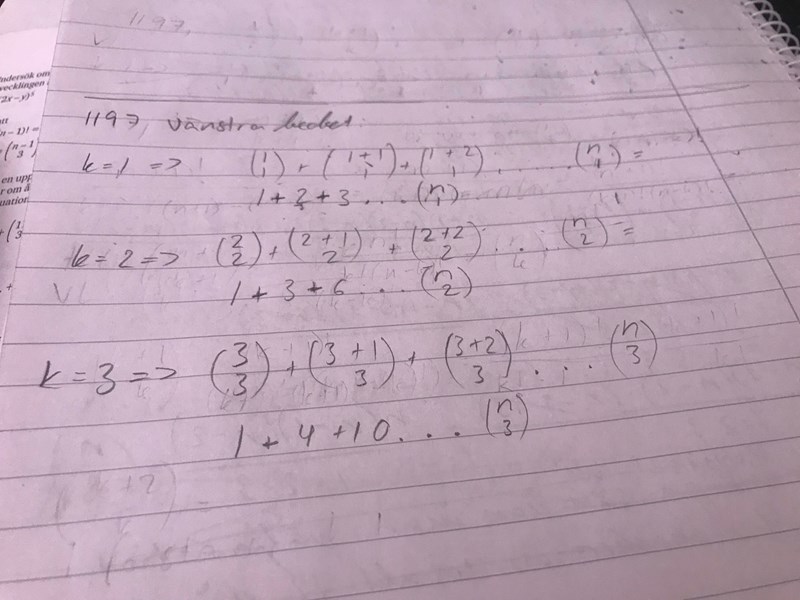 1197,
ndersök om
vecklingen
(2x-y)⁵
n-1)! =
(n-1 3)
en upp
r om å
uation
1197, vänstra ledet.
k=1 => (1 1) + (1+1 1) + (1+2 1) . . . . . . (n 1) =
1 + 2 + 3 . . . (n 1)
k=2 => (2 2) + (2+1 2) + (2+2 2) . . . (n 2) =
1 + 3 + 6 . . . (n 2)
k=3 => (3 3) + (3+1 3) + (3+2 3) . . . (n 3)
1 + 4 + 10 . . . (n 3)